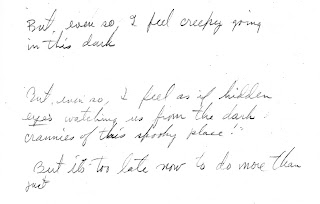 But, even so, I feel creepy going
in this dark
"But, even so, I feel as if hidden
eyes watching us from the dark
crannies of this spooky place!"
But it's too late now to do more than
just